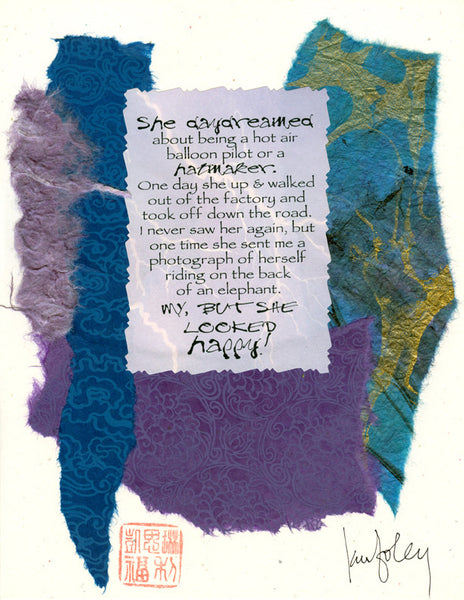 She daydreamed
about being a hot air
balloon pilot or a
hatmaker.
One day she up & walked
out of the factory and
took off down the road.
I never saw her again, but
one time she sent me a
photograph of herself
riding on the back
of an elephant.
MY, BUT SHE
LOOKED
happy!
凱思琳
福利
foley